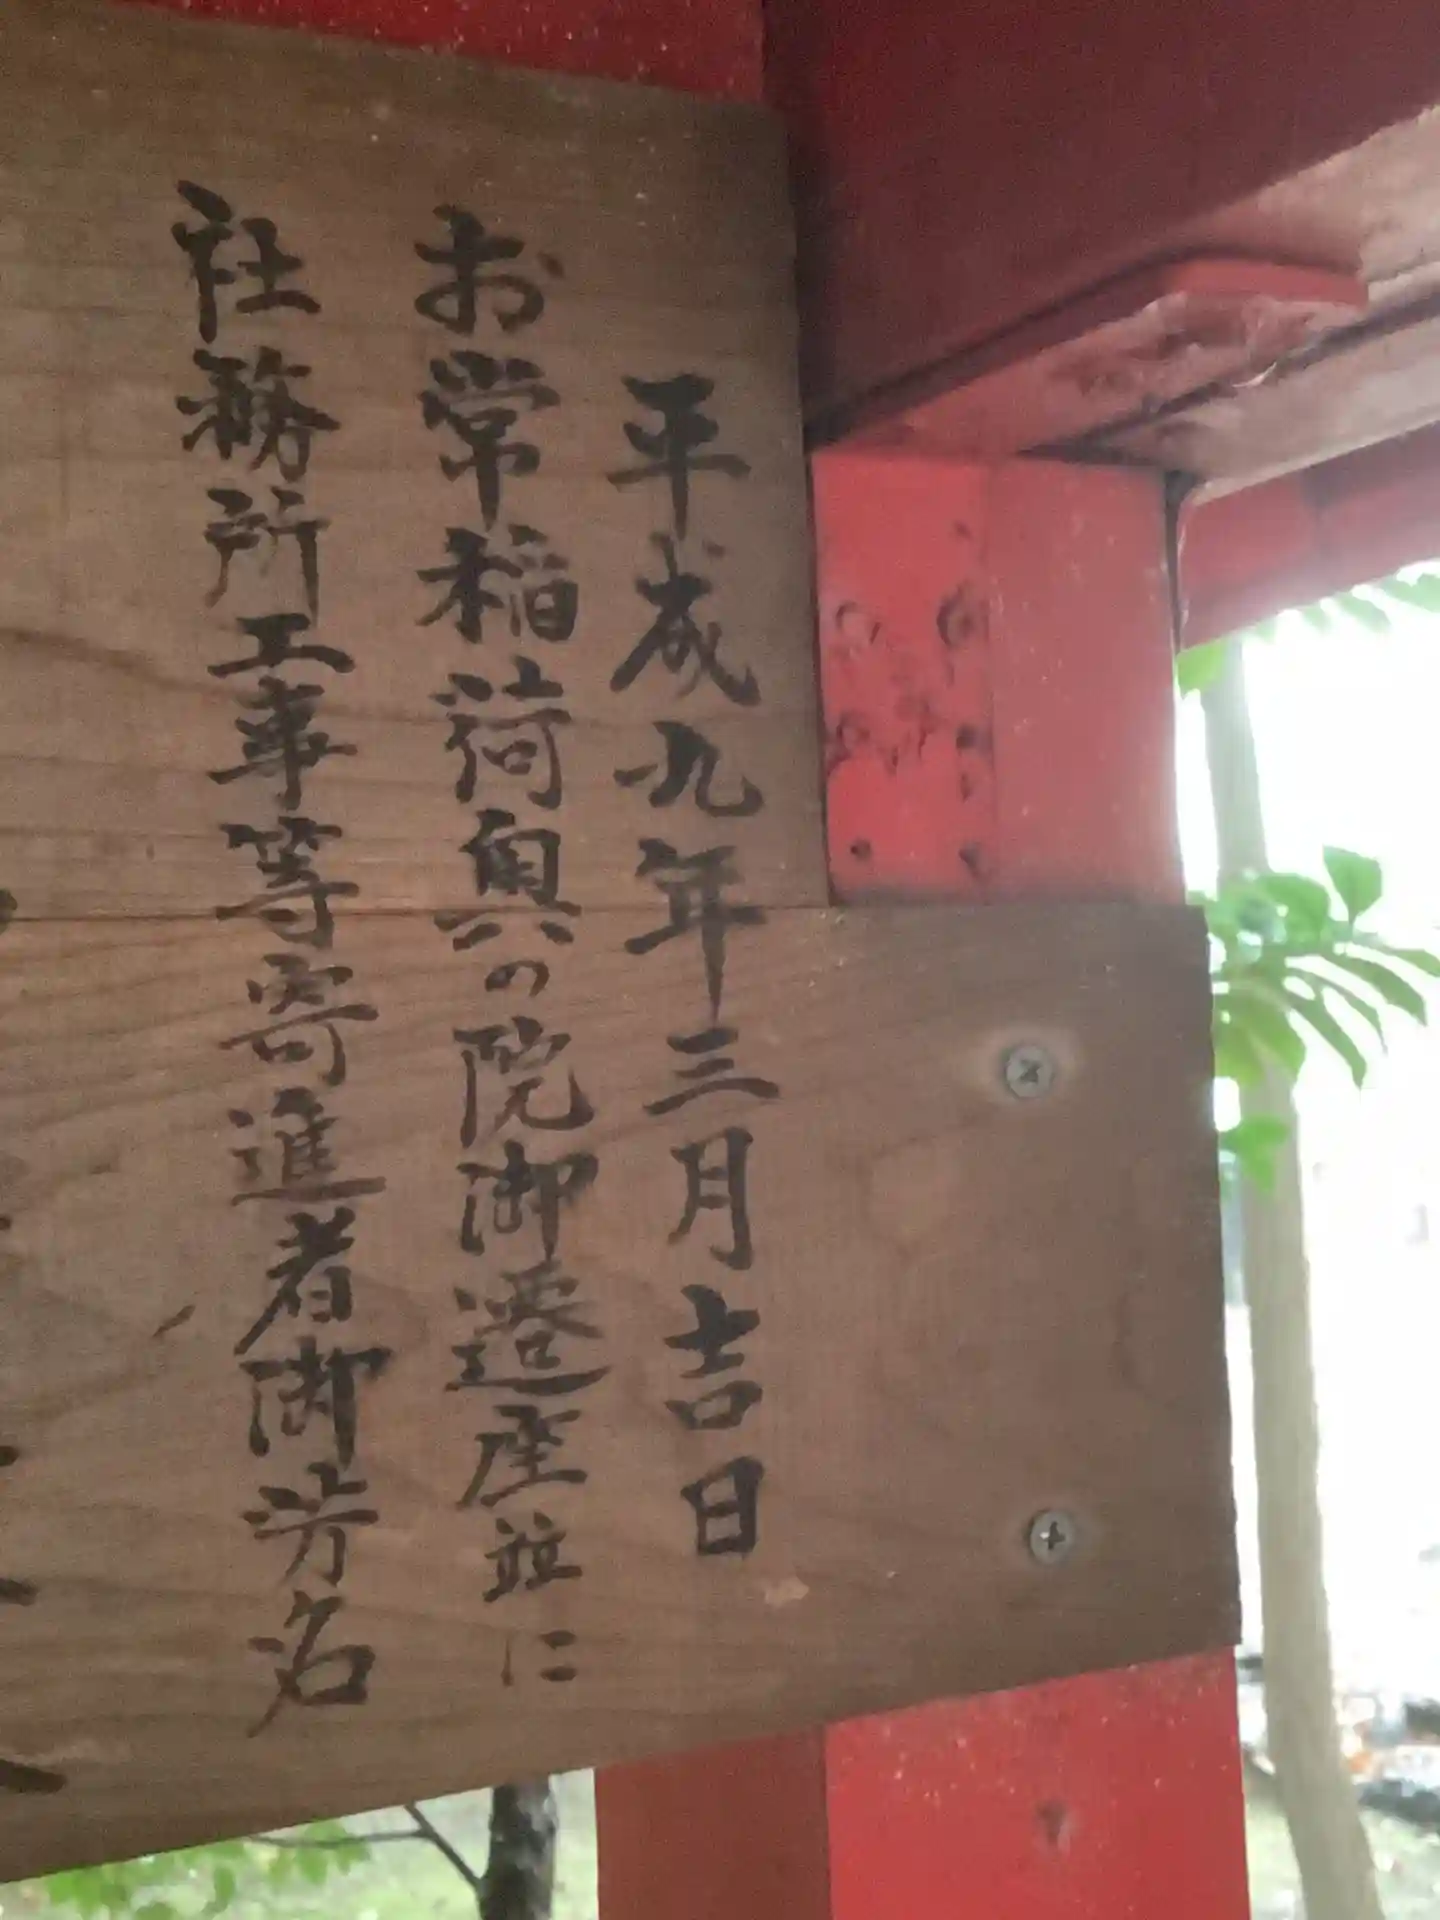 平成九年三月吉日
お常稲荷奥の院御遷座並に
社務所工事等寄進者御芳名